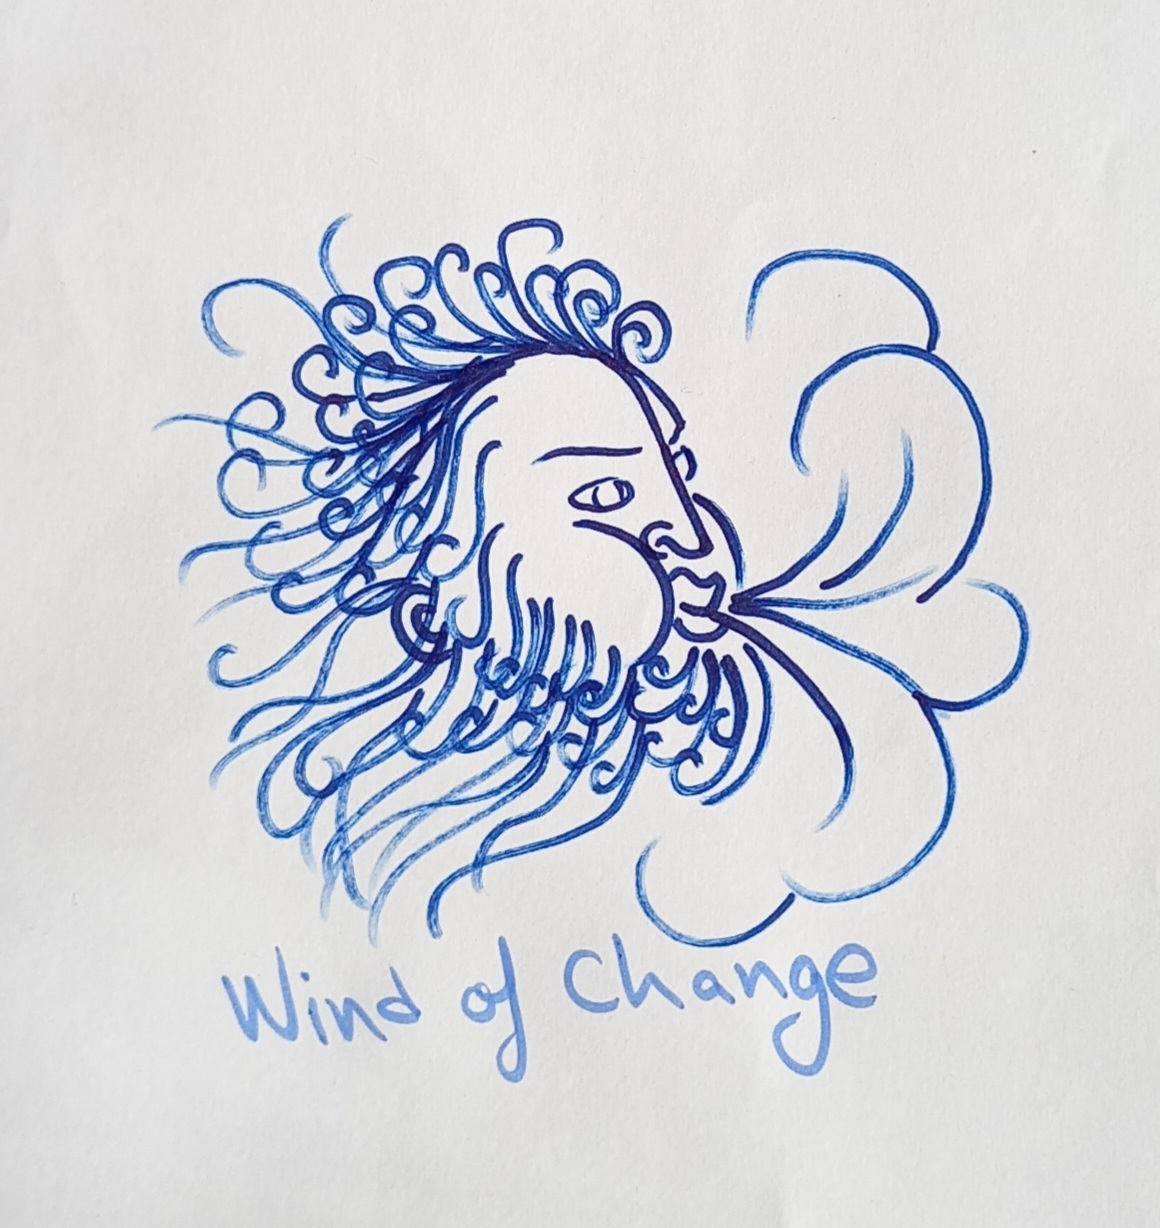 Wind of Change